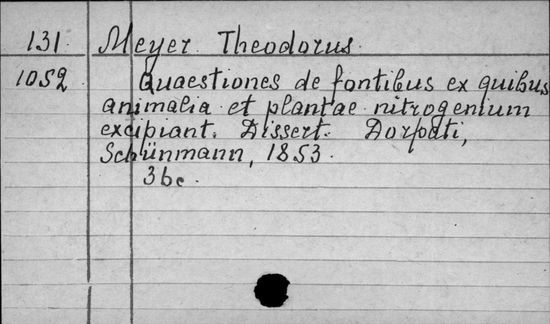 131. Meyer Theodorus.
1052 Quaestiones de fontibus ex quibus
animalia et plantae nitrogenium
excipiant. Dissert. Dorpati,
Schünmann, 1853.
36c.